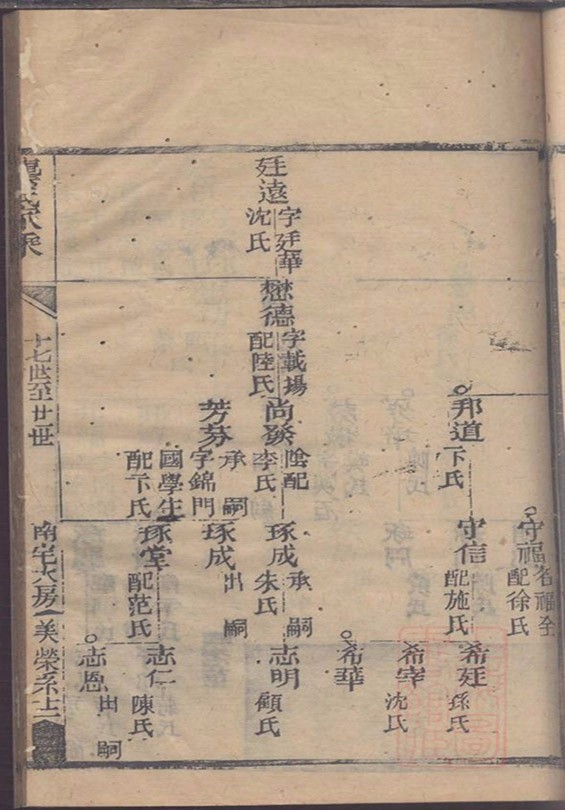 守福
者福全
配徐氏
邦道
卞氏
守信
配施氏
希廷
孫氏
希宰
沈氏
希華
廷遠
字廷華
沈氏
懋德
字載場
配陸氏
尚發
陰配
李氏
琢成
承嗣
朱氏
志明
顧氏
芳芬
承嗣
字錦門
國學生
配卞氏
琢成
出嗣
琢堂
配范氏
志仁
陳氏
志恩
出嗣
龔氏家乘
十七世至廿世
南宅六房
美榮系